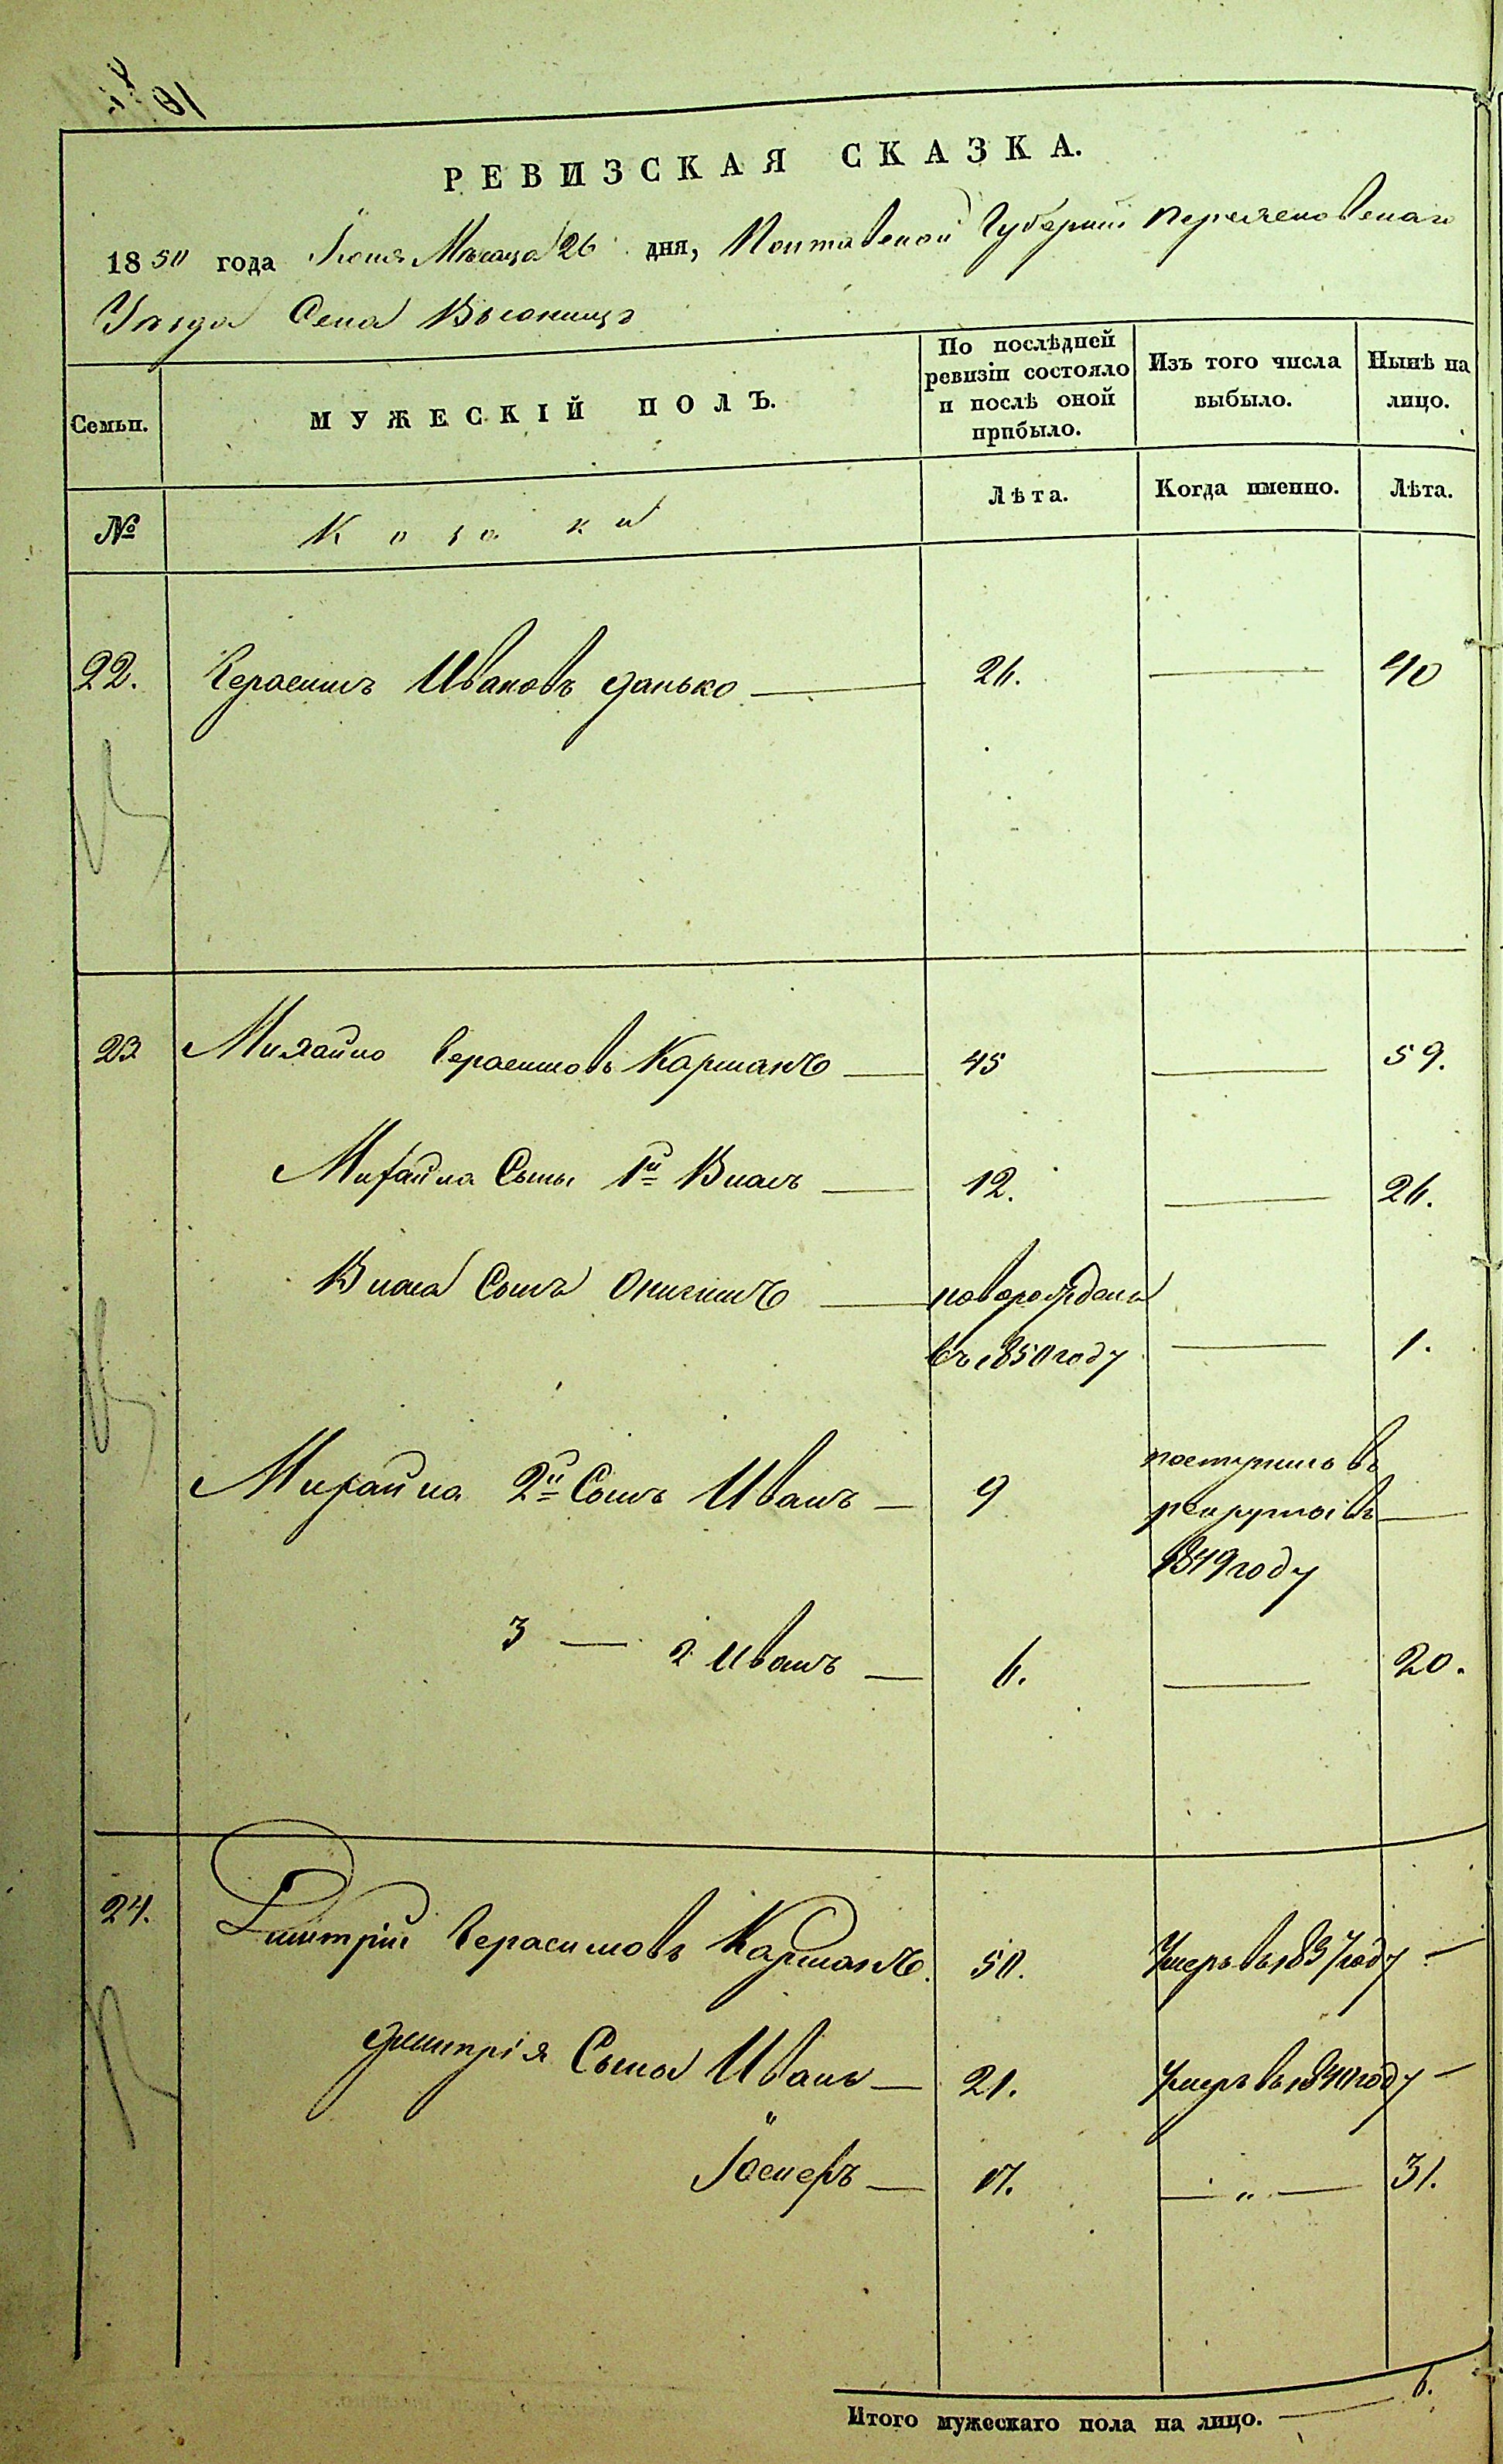 РЕВИЗСКАЯ СКАЗКА.
1850 года Іюня Мѣсяца 26 дня, Полтавской Губерніи Переяславскаго
Уезда Села
Семьи.
МУЖЕСКІЙ ПОЛЪ.
По послѣдней
ревизіи состояло
и послѣ оной
прибыло.
Изъ того числа
выбыло.
Нынѣ на
лицо.
№
Козаки
Лѣта.
Когда именно.
Лѣта.
22. Герасимъ Ивановъ Данько — 26. — 40
23 Михайло Герасимовъ Карманъ — 45 — 59.
Михайла Сыны 1й Власъ — 12. — 26.
Власа Сынъ — новорожденъ
въ 1850 году — 1.
Михайла 2й Сынъ Иванъ — 9 поступилъ въ
рекруты въ —
1849 году
3 — 2 Иванъ — 6. — 20.
24. Дмитрій Герасимовъ Карманъ. 50. Умеръ въ 1837 году —
Дмитрія Сыны Иванъ — 21. Умеръ въ 1840 году —
"
Іосифъ — 17. — „ — 31.
Итого мужескаго пола на лицо. — 6.